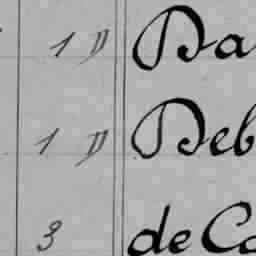 1 " Da
1 " Deb
3 de Co